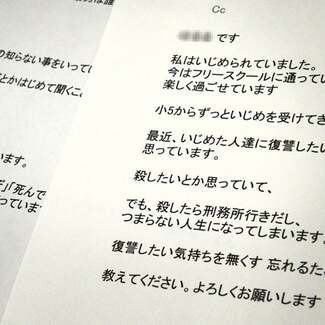 の知らない事をいって
とかはじめて聞くこ
います。
「死んで
っていま
Cc
です
私はいじめられていました。
今はフリースクールに通ってい
楽しく過ごせています
小5からずっといじめを受けてき
最近、いじめた人達に復讐したい
思っています。
殺したいとか思っていて、
でも、殺したら刑務所行きだし、
つまらない人生になってしまいます。
復讐したい気持ちを無くす 忘れるた
教えてください。よろしくお願いします